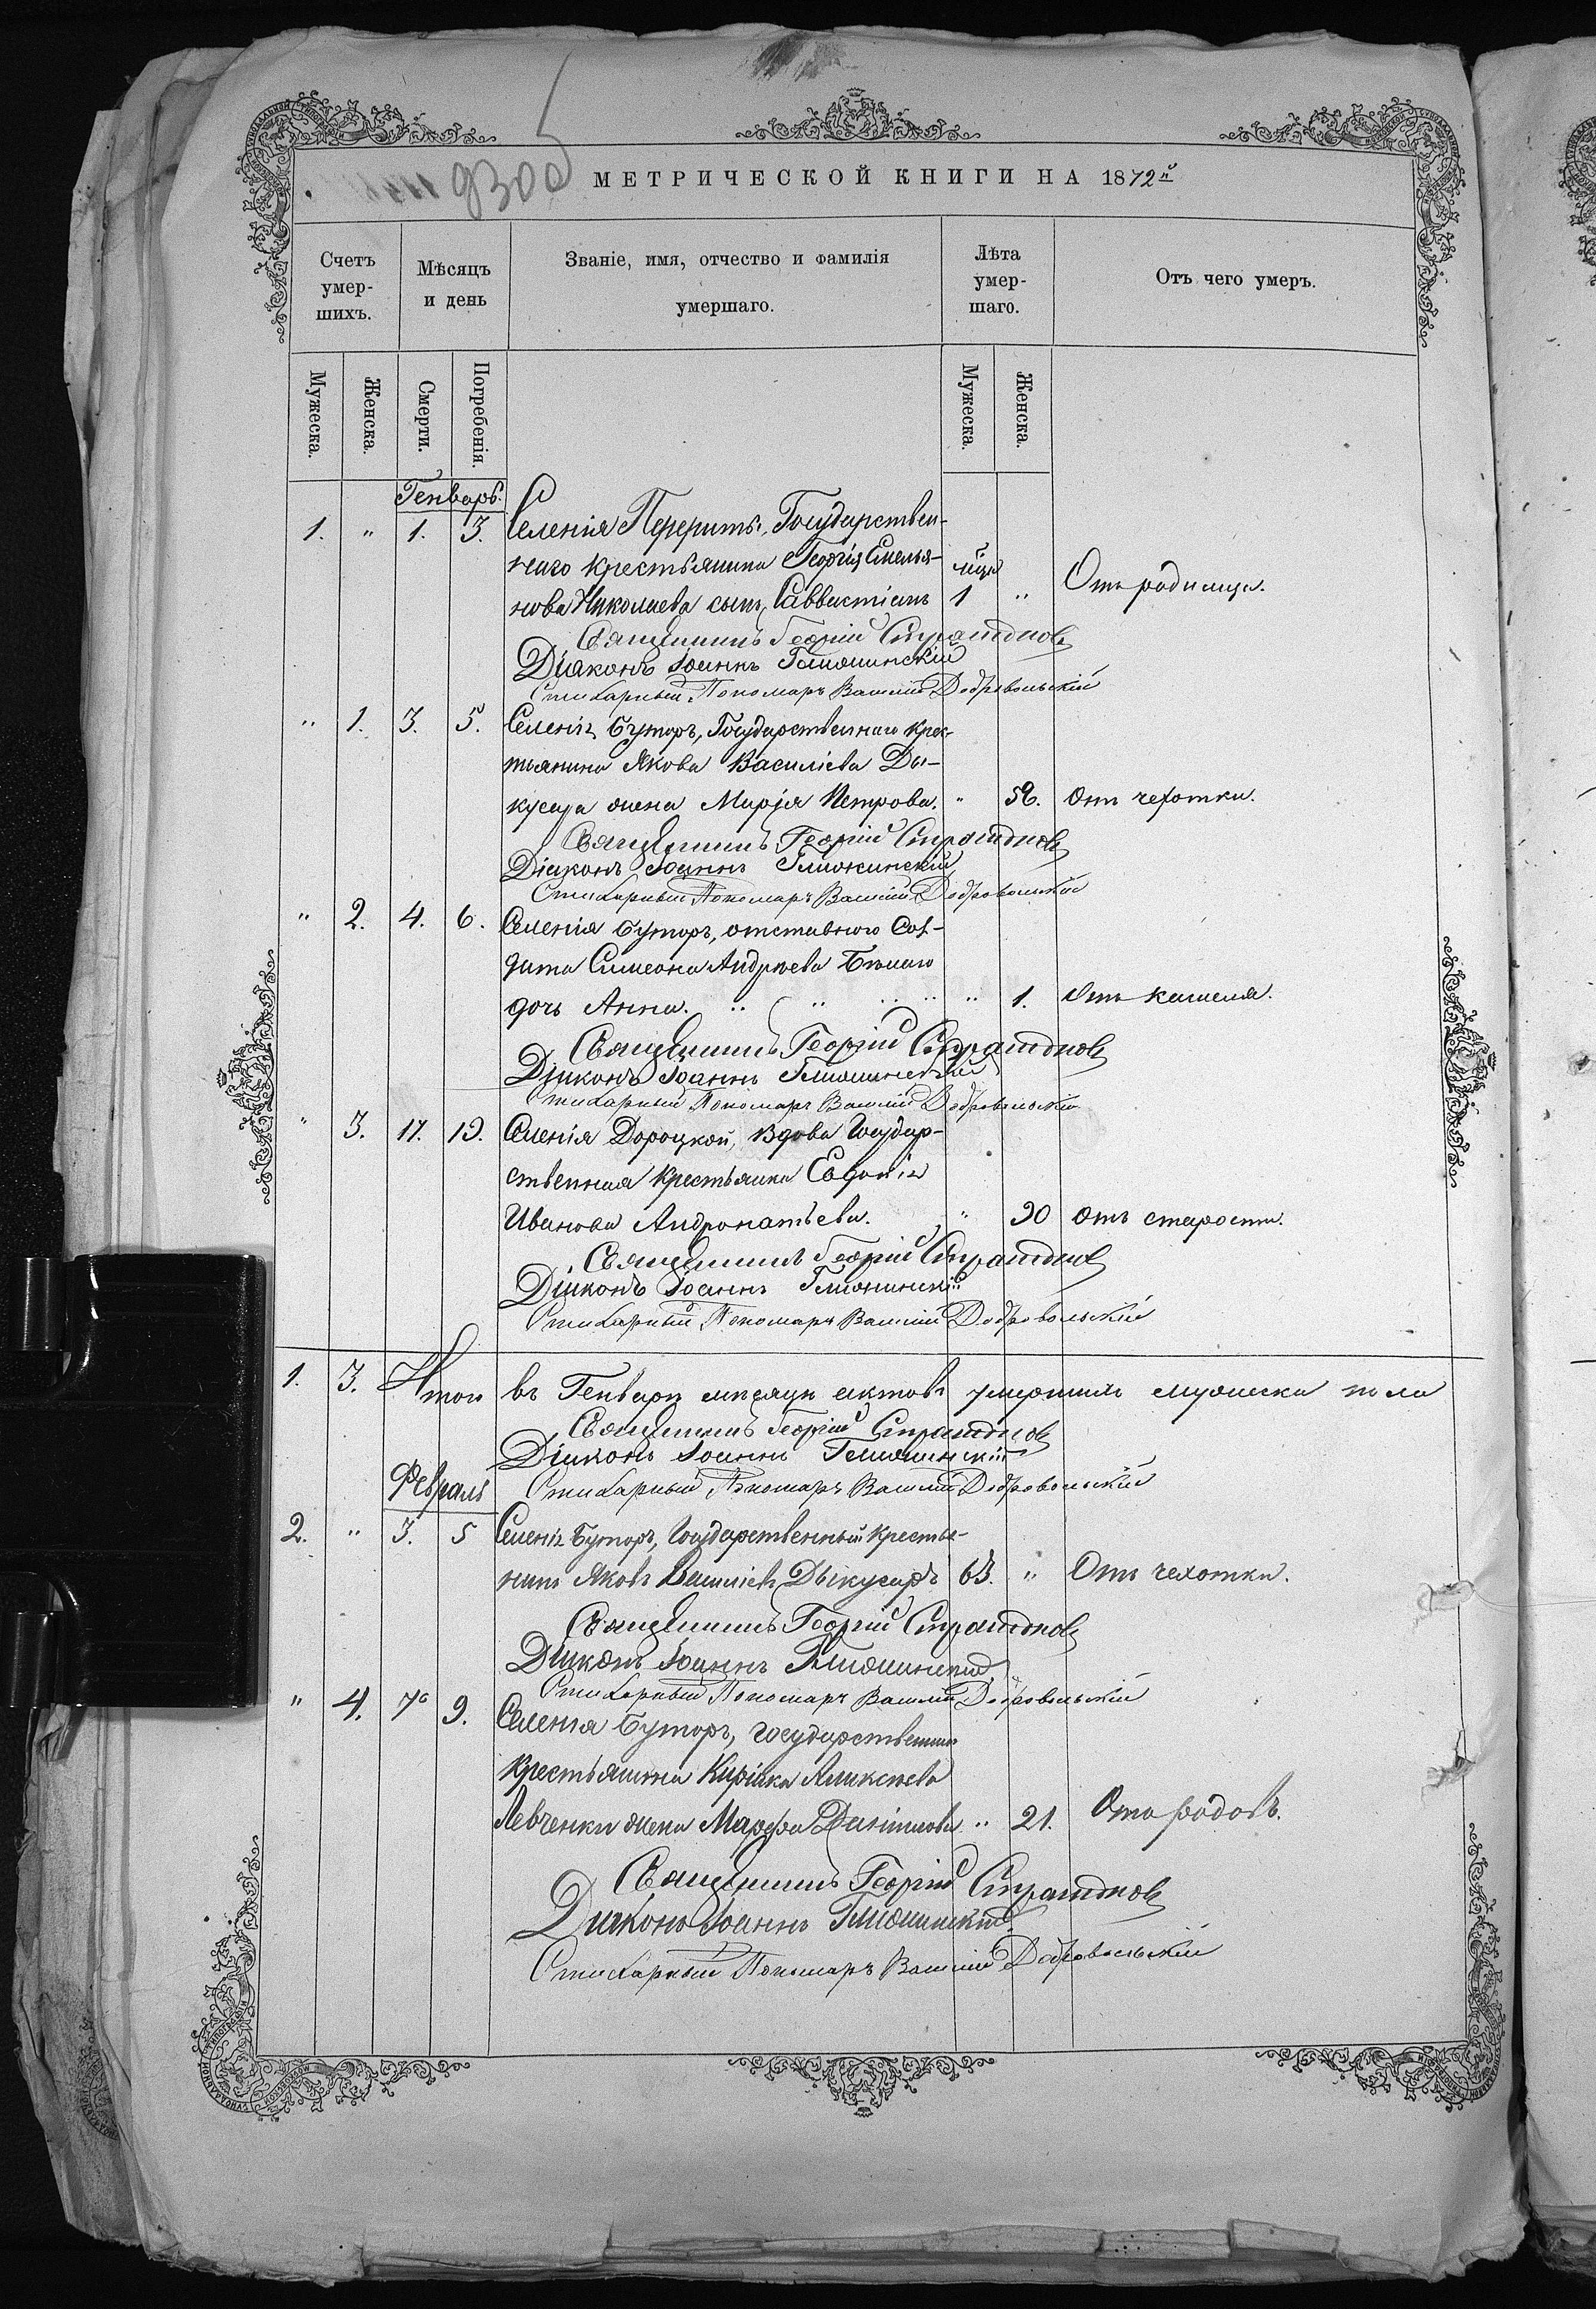 9300
МЕТРИЧЕСКОЙ КНИГИ НА 1872й
Счетъ умер-шихъ.
Мѣсяцъ и день
Званіе, имя, отчество и фамилія умершаго.
Лѣта умер-шаго.
Отъ чего умеръ.
Мужеска.
Женска.
Смерти.
Погребенія.
Мужеска.
Женска.
Генварь.
1. " 1. 3. Селенія Перериты, Государствен-
наго крестьянина Георгія Емелья-
нова Николаева сынъ, Саввастіанъ 1 " Отъ родимца.
Священникъ Георгій Стратоновъ
Діаконъ Іоаннъ Глижинскій
Стихарный Пономарь Василій Добровольскій
" 1. 3. 5. Селенія Буторъ, Государственнаго крес-
тьянина Якова Василіева Ды-
кусара жена Марія Петрова. " 56. Отъ чехотки.
Священникъ Георгій Стратоновъ
Діаконъ Іоаннъ Глижинскій
Стихарный Пономарь Василій Добровольскій
" 2. 4. 6. Селенія Буторъ, отставного Сол-
дата Симеона Андреева Бѣлаго
дочь Анна. " " " " " 1. Отъ кашеля.
Священникъ Георгій Стратоновъ
Діаконъ Іоаннъ Глижинскій
Стихарный Пономарь Василій Добровольскій
" 3. 17. 19. Селенія Дороцкой, вдова Государ-
ственная крестьянка Евдокія
Иванова Андронатьева. " 90 Отъ старости.
Священникъ Георгій Стратоновъ
Діаконъ Іоаннъ Глижинскій
Стихарный Пономарь Василій Добровольскій
1. 3. Итого въ Генварѣ мѣсяцѣ актовъ умершихъ мужеска пола
Священникъ Георгій Стратоновъ
Діаконъ Іоаннъ Глижинскій
Стихарный Пономарь Василій Добровольскій
Февраль
2. " 3. 5 Селенія Буторъ, Государственный крестья-
нинъ Яковъ Василіевъ Дыкусаръ 63. " Отъ чехотки.
Священникъ Георгій Стратоновъ
Діаконъ Іоаннъ Глижинскій
Стихарный Пономарь Василій Добровольскій
" 4. 7. 9. Селенія Буторъ, государственнаго
крестьянина Киріяка Аликсѣева
Левченки жена Марфа Даніилова " 21. Отъ родовъ.
Священникъ Георгій Стратоновъ
Діаконъ Іоаннъ Глижинскій
Стихарный Пономарь Василій Добровольскій